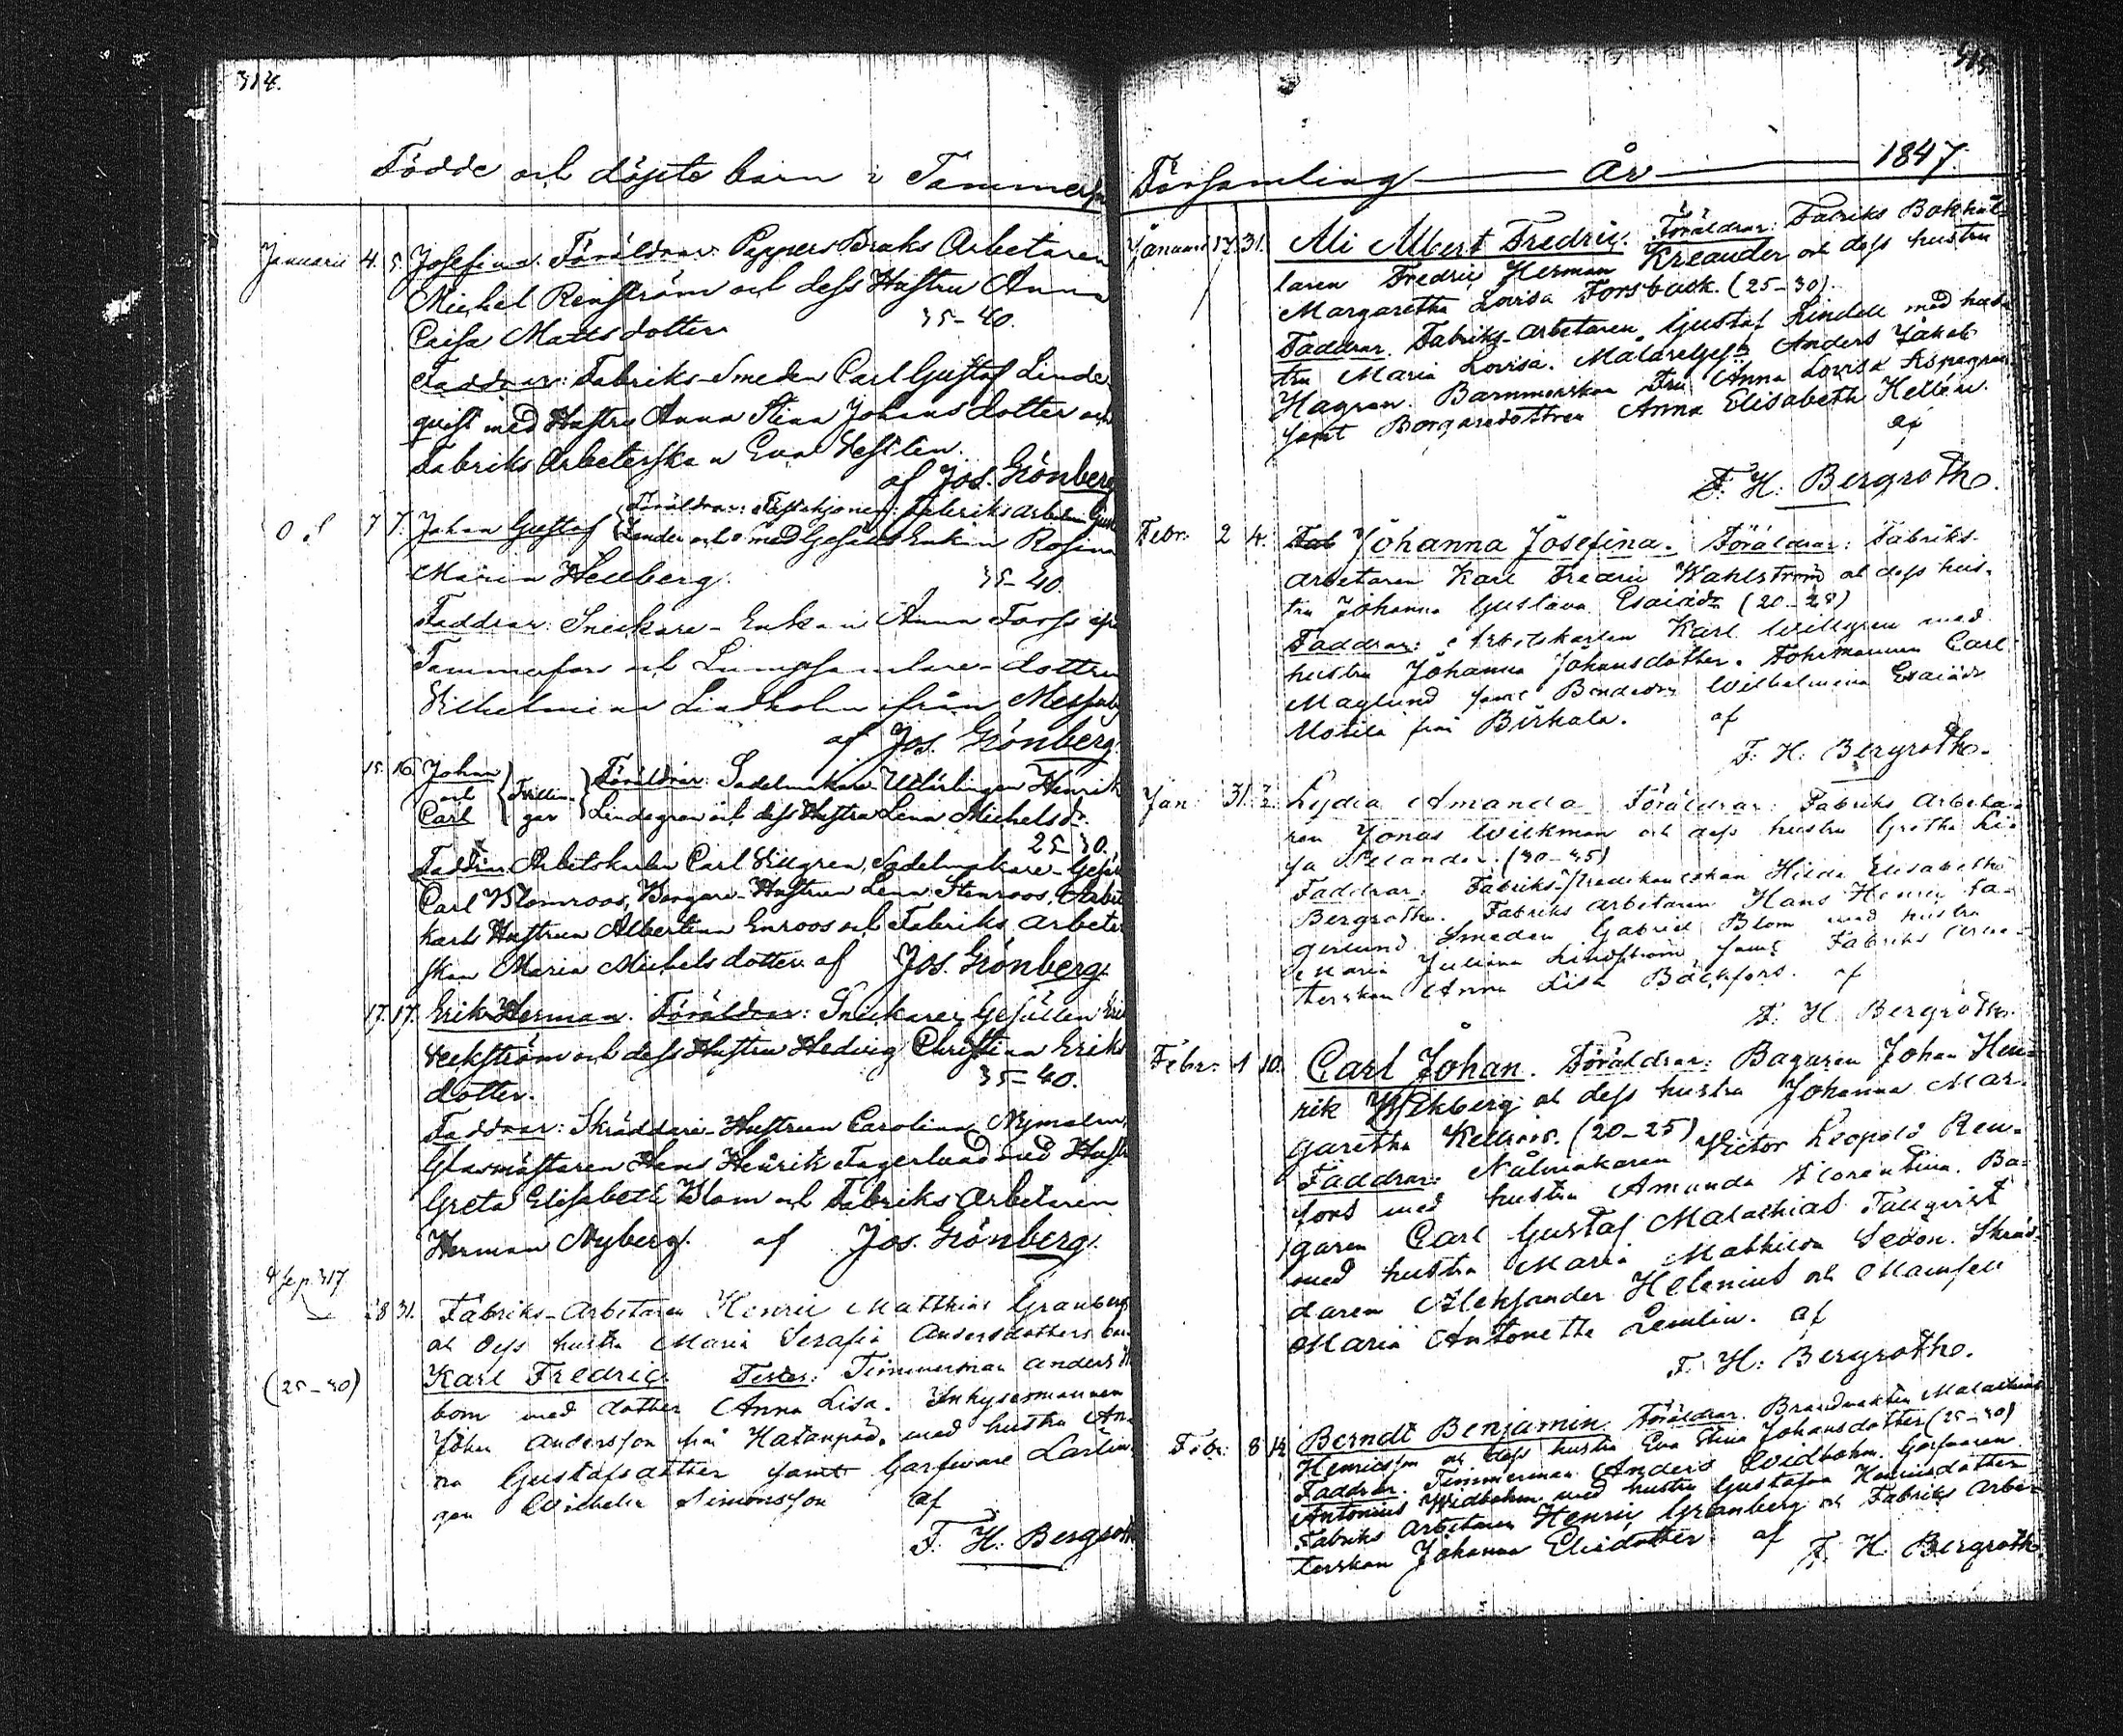 314.
Födde och döpte barn i Tammerfo
Januarii 4. 5. Josefina. Föräldrar: Pappers Bruks Arbetaren
Michel Renström och dess Hustru Anna
Caisa Mattsdotter 35-40.
Faddrar: Fabriks-Smeden Carl Gustaf Linde
quist med Hustru Anna Stina Johansdotter och
Fabriks Arbeterskan Eva Vestlen.
af Jos. Grönberg
7 7. Johan Gustaf Föräldrar: Fabriksarb
Lander och med Enkan Rosina
Maria Hellberg. 35-40.
Faddrar: Snickare-Enkan Anna Forss
Tammerfors och Lumpsamlare-dottren
Vilhelmina Lindholm från Messuby
af Jos. Grönberg.
15. 16. Johan och Carl Tvillingar Föräldrar: Sadelmakare Utlärlingen Henrik
Lindegren och dess Hustru Lena Michelsdr.
25-30.
Arbetskarlen Carl Villgren, Sadelmakare-Gesäl
Carl Blomroos, Bergare-Hustrun Lena Stenroos, Arbets
karls Hustrun Albertina Enroos och Fabriks arbeter
skan Maria Michelsdotter. af Jos. Grönberg.
17. 17. Erik Herman. Föräldrar: Snickare Gesällen Erik
Veckström och dess Hustru Hedvig Christina Eriks
dotter. 35-40.
Faddrar: Skräddare-Hustrun Carolina Nymalm,
Glasmästaren Hans Henrik Fagerlund med Hustru
Greta Elisabeth Blom och Fabriks Arbetaren
Herman Nyberg. af Jos. Grönberg.
317
28 31. Fabriks-Arbetaren Henric Matthias Granberg
och dess hustru Maria Serafia Andersdotters barn
(25-30) Karl Fredric. Testes: Timmerman Anders
bom med dotter Anna Lisa. Inhysesmannen
Johan Andersson från Hatanpää, med hustru An
na Gustafsdotter samt Garfvare Lärlin
gen Wilhelm Simonsson af
F. H. Bergroth
315.
Församling År 1847.
Januarii 17. 31. Ali Albert Fredric. Föräldrar: Fabriks Bokhål-
laren Fredric Herman Kreander och dess hustru
Margaretha Lovisa Forsback. (25-30).
Faddrar. Fabriks-arbetaren Gustaf Lindell med hus
tru Maria Lovisa. Målaregesn Anders Jakob
Hagron. Barnmorskan Fru Anna Lovisa Aspegren
samt Borgaredottren Anna Elisabeth Hellen.
af
F. H. Bergroth.
Febr. 2 4. Johanna Josefina. Föräldrar: Fabriks-
arbetaren Karl Fredric Wahlström och dess hus-
tru Johanna Gustava Esaiædr (20-25)
Faddrar: Arbetskarlen Karl Willgren med
hustru Johanna Johansdotter. Fohrmannen Carl
Maglund samt Bondedr Wilhelmina Esaiædr
från Birkala. af
F. H. Bergroth.
Jan. 31. 2. Lydia Amanda Föräldrar: Fabriks Arbeta-
ren Jonas Wilkman och dess hustru Gretha Li-
sa Selander. (30-35)
Faddrar: Fabriks- Hilda Elisabeth
Bergroth. Fabriks arbetaren Hans Henric Fa-
gerlund. Smeden Gabriel Blom med hustru
Maria Juliana Lindström samt Fabriks Arbe-
terskan Anna Lisa Backfors. af
F. H. Bergroth.
Febr. 1 10. Carl Johan. Föräldrar: Bagaren Johan Hen-
rik Wekberg och dess hustru Johanna Mar-
garetha Kellroos. (20-25)
Faddrar: Nålmakaren Victor Leopold Ren-
fors med hustru Amanda Florentina. Ba-
garen Carl Gustaf Malachias Tallqvist
med hustru Maria Mathilda Sedon. Skräd-
daren Aleksander Helenius och Mamsell
Maria Antonetta Zemlin. af
F. H. Bergroth.
Febr. 8 14 Berndt Benjamin. Föräldrar. Brandvakten Malachias
Henricsson och dess hustru Eva Stina Johansdotter (25-30)
Faddrar. Timmerman Anders Widbohm. Garfvaren
Antonius Widbohm med hustru Gustafva Henricsdotter
Fabriks Arbetaren Henric Granberg och Fabriks Arbe-
terskan Johanna Elisdotter. af F. H. Bergroth.